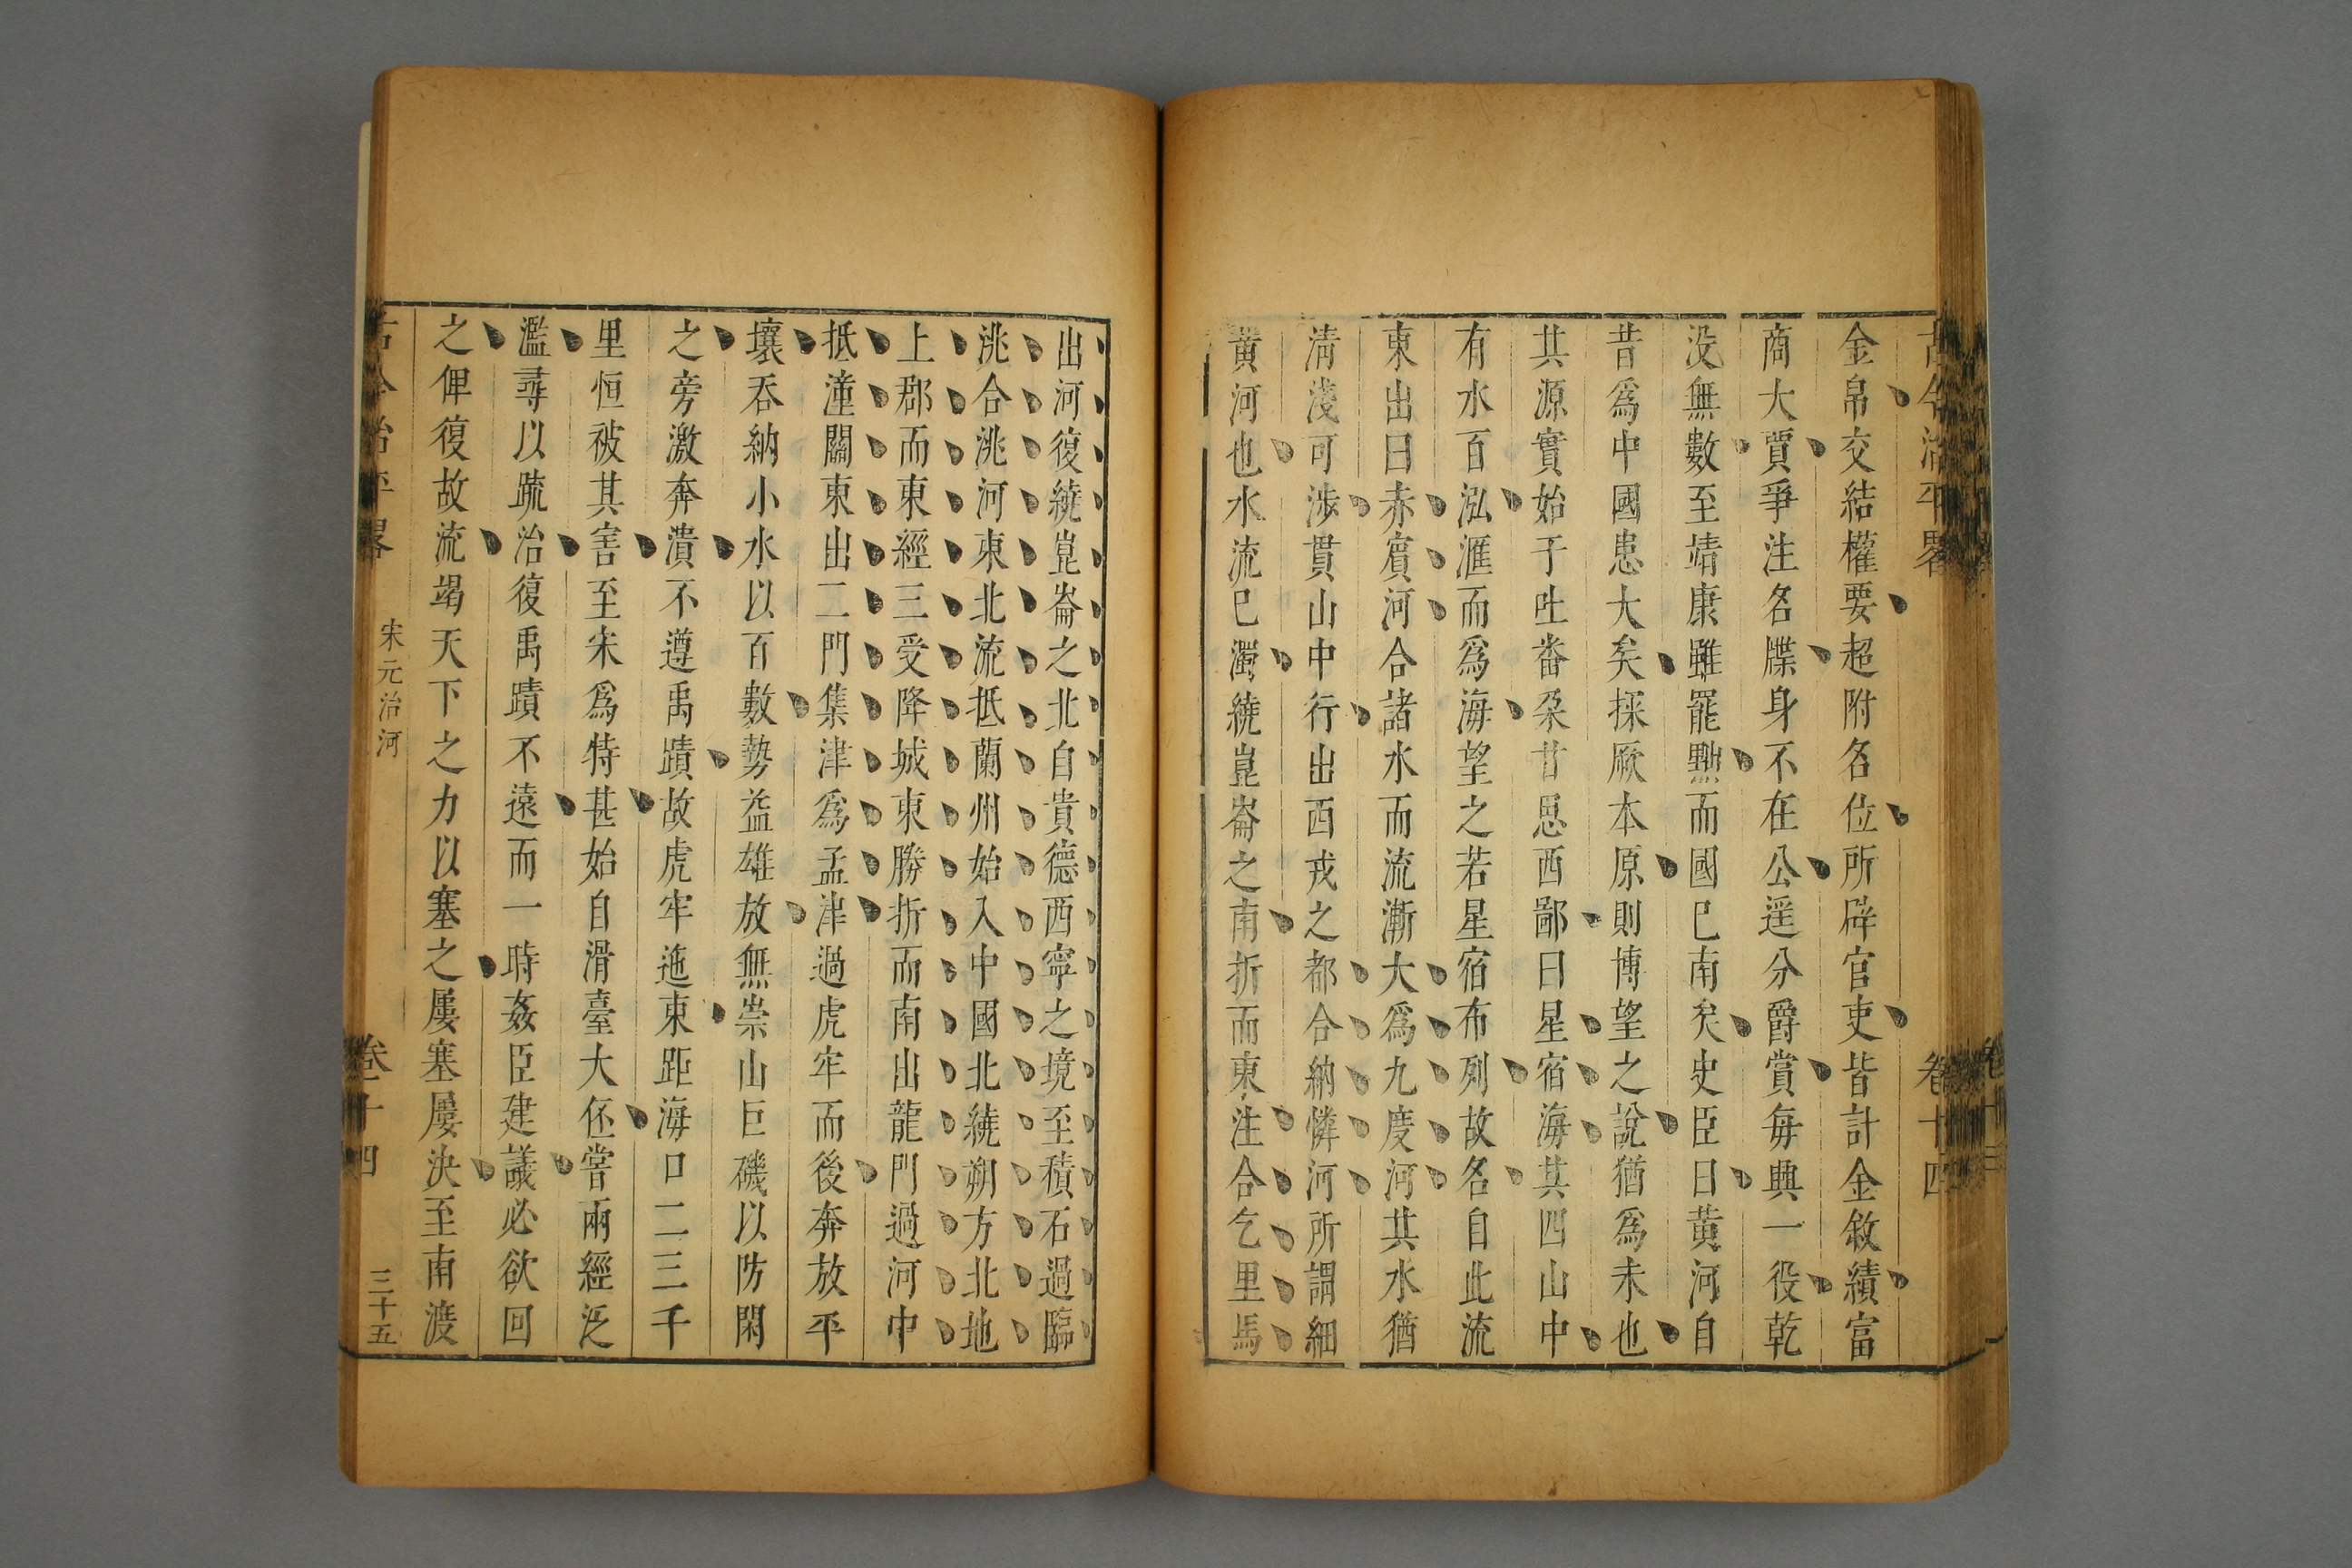 古今治平畧
卷十四
金帛交結權要超附名位所辟官吏皆計金敘績富
商大賈爭注名牒身不在公遥分爵賞每興一役乾
没無數至靖康雖罷黜而國已南矣史臣曰黄河自
昔爲中國患大矣探厥本原則博望之說猶爲未也
其源實始于吐番朶甘思西鄙曰星宿海其四山中
有水百泓滙而爲海望之若星宿布列故名自此流
東出曰赤賔河合諸水而流漸大爲九度河其水猶
清淺可涉貫山中行出西戎之都合納憐河所謂細
黄河也水流已濁繞崑崙之南折而東注合乞里馬
出河復繞崑崙之北自貴德西寧之境至積石過臨
洮合洮河東北流抵蘭州始入中國北繞朔方北地
上郡而東經三受降城東勝折而南出龍門過河中
抵潼關東出二門集津爲孟津過虎牢而後奔放平
壤吞納小水以百數勢益雄放無崇山巨磯以防閑
之旁激奔潰不遵禹蹟故虎牢迤東距海口二三千
里恒被其害至宋爲特甚始自滑臺大伾嘗兩經泛
濫尋以䟽治復禹蹟不遠而一時姦臣建議必欲回
之俾復故流竭天下之力以塞之屢塞屢決至南渡
古今治平畧
宋元治河
卷十四
三十五